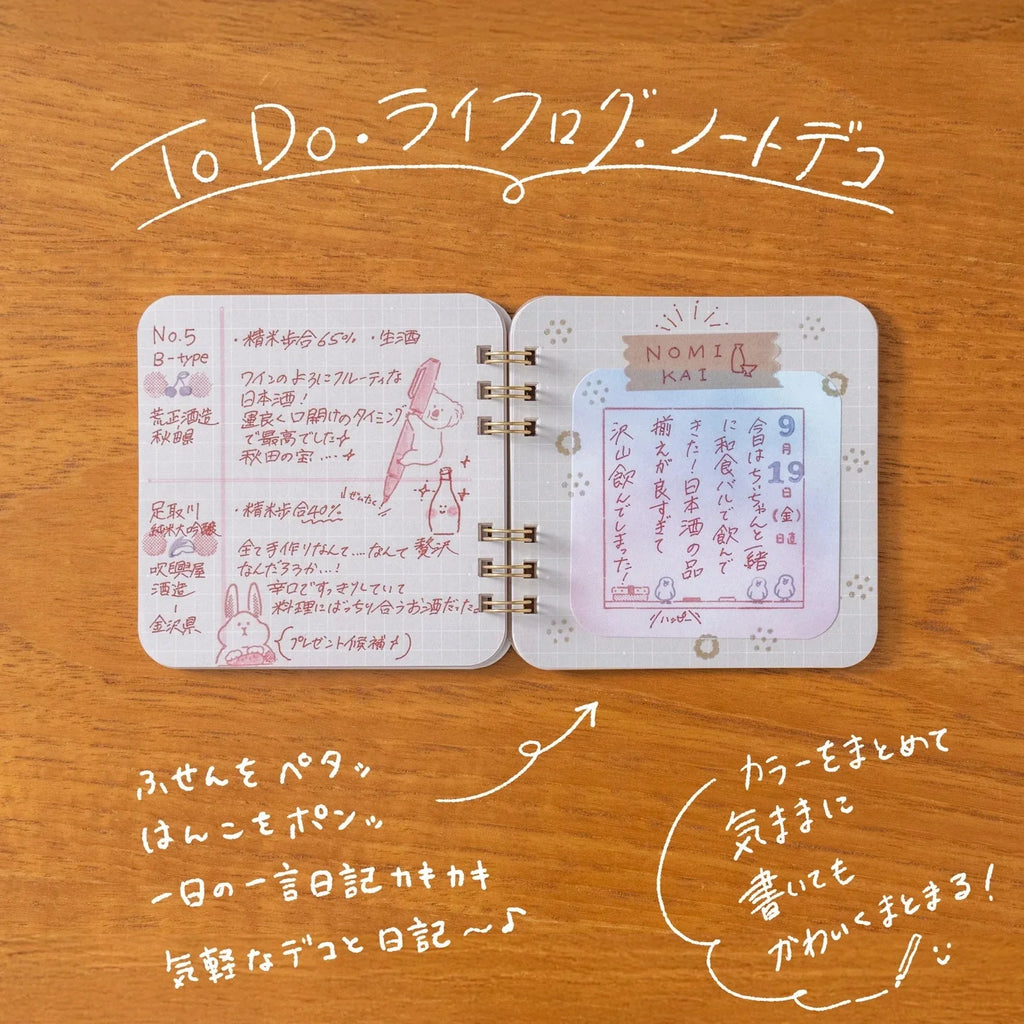 To Do・ライフログ・ノートデコ
No.5
B-type
荒正酒造
秋田県
・精米歩合65% ・生酒
ワインのようにフルーティな
日本酒！
運良く口開けのタイミング
で最高でした
秋田の宝....
足取川
純米大吟醸
吹興屋
酒造
金沢県
・精米歩合40%
ぜいたく
全て手作りなんて...なんて贅沢
なんだろうか...！
辛口ですっきりしていて
料理にばっちり合うお酒だった。
(プレゼント候補)
NOMI
KAI
9月19日(金)曜
今日はちぃちゃんと一緒
に和食バルで飲んで
きた！日本酒の品
揃えが良すぎて
沢山飲んでしまった！
ハッピー
ふせんをペタッ
はんこをポンッ
一日の一言日記カキカキ
気軽なデコと日記〜♪
カラーをまとめて
気ままに
書いても
かわいくまとまる！